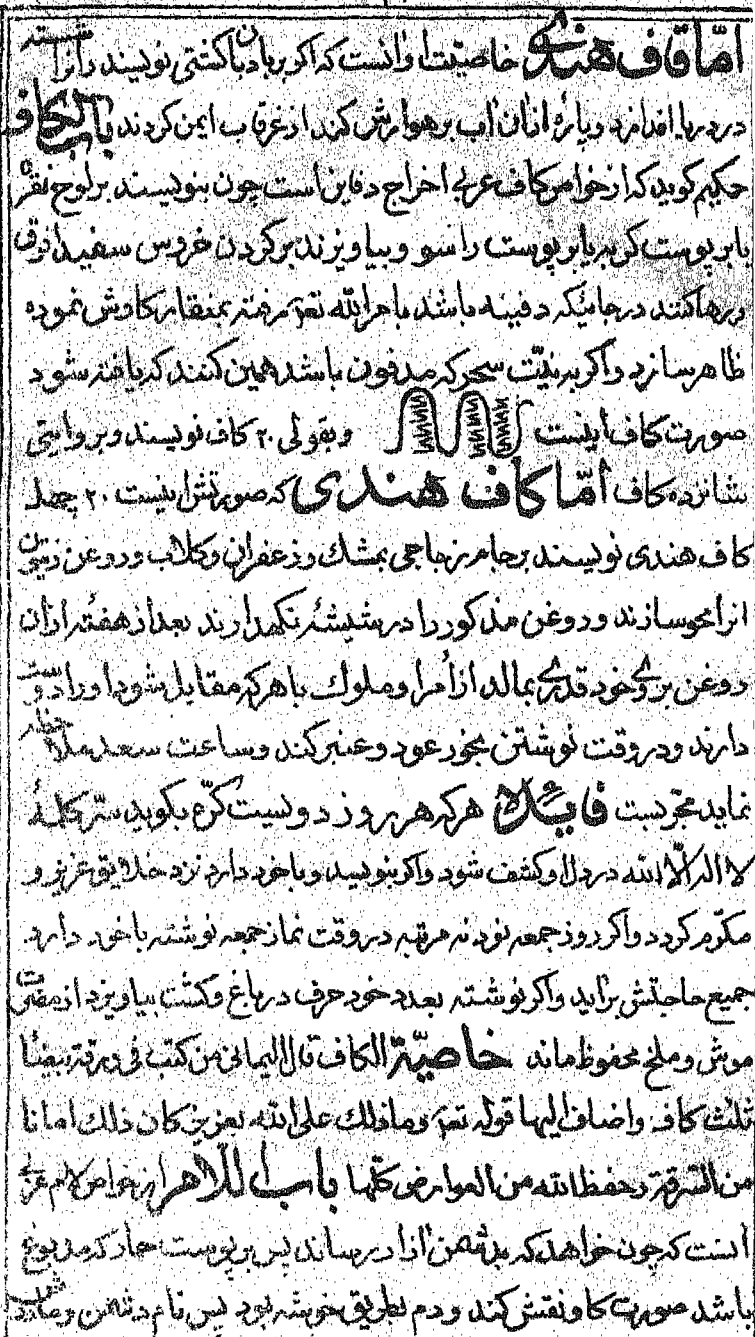 امّا قاف هندی خاصیتش اوانست که اکر بر بادبان کشتی نویسند و انرا شسته
در دریا اندازد و پارۀ ازان اب بر هوا رش کند از غرقاب ایمن کردند باب الکاف
حکیم کوید که از خواص کاف عربی اخراج دفاین است چون بنویسند بر لوح نقره
یا بر پوست کربه یا بر پوست راسو و بیاویزند بر کردن خروس سفید افرق
و رها کنند در جائیکه دفینه باشد بامر الله تع رفته بمنقار کاوش نموده
ظاهر سازد و اکر به نیّت سحر که مدفون باشد همین کنند که یافته شود
صورت کاف اینست و بقولی ۲۰ کاف نویسند و بروایتی
شانزده کاف امّا کاف هندی که صورتش اینست ۲۰ چهل
کاف هندی نویسند بر جام زجاجی بمشك و زعفران و کلاب و روغن زیتون
انرا محو سازند و روغن مذکور را در شیشۀ نکهدارند بعد از هفته ازان
روغن بروی خود قدری بمالد از امرا و ملوك با هر که مقابل شود او را دوست
دارند و در وقت نوشتن بخور عود و عنبر کند و ساعت سعد ملاحظه
نماید مجرّبست فایده هر که هر روز دویست کرّه بکوید سرّ کلمۀ
لا اله الّا الله در دل او کشف شود و اکر بنویسد و با خود دارد نزد خلایق عزیز و
مکرّم کردد و اکر روز جمعه نود نه مرتبه در وقت نماز جمعه نوشته با خود دارد
جمیع حاجتش براید و اکر نوشته بعدد خود حرف در باغ و کشت بیاویزد از مضرّت
موش و ملخ محفوظ ماند خاصیّة الکاف قال الیمانی من کتب فی ورقة بیضا
ثلث کاف و اضاف الیها قوله تع و ما ذلك علی الله بعزیز کان ذلك امانا
من السرقة و حفظ الله من العوارض کلّها باب اللام از خواص لام عربی
انست که چون خواهد که بدشمن ازار رساند پس بر پوست حمار که مدبوغ
باشد صورت کاو نقش کند و دم بطریق خوشه بود پس نام دشمن و مادرش